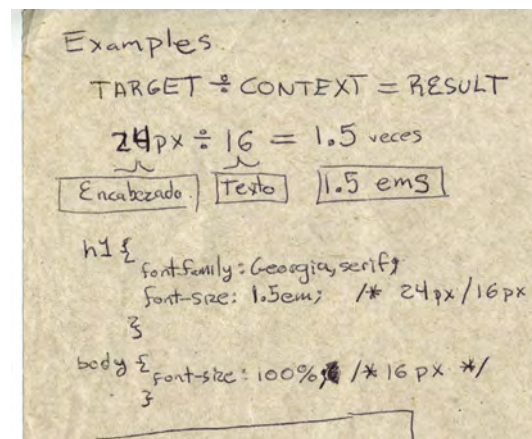 Examples.
TARGET ÷ CONTEXT = RESULT
24px ÷ 16 = 1.5 veces
Encabezado Texto 1.5 ems
h1 {
font-family: Georgia, serif;
font-size: 1.5em; /* 24px/16px
}
body {
font-size: 100%; /* 16px */
}